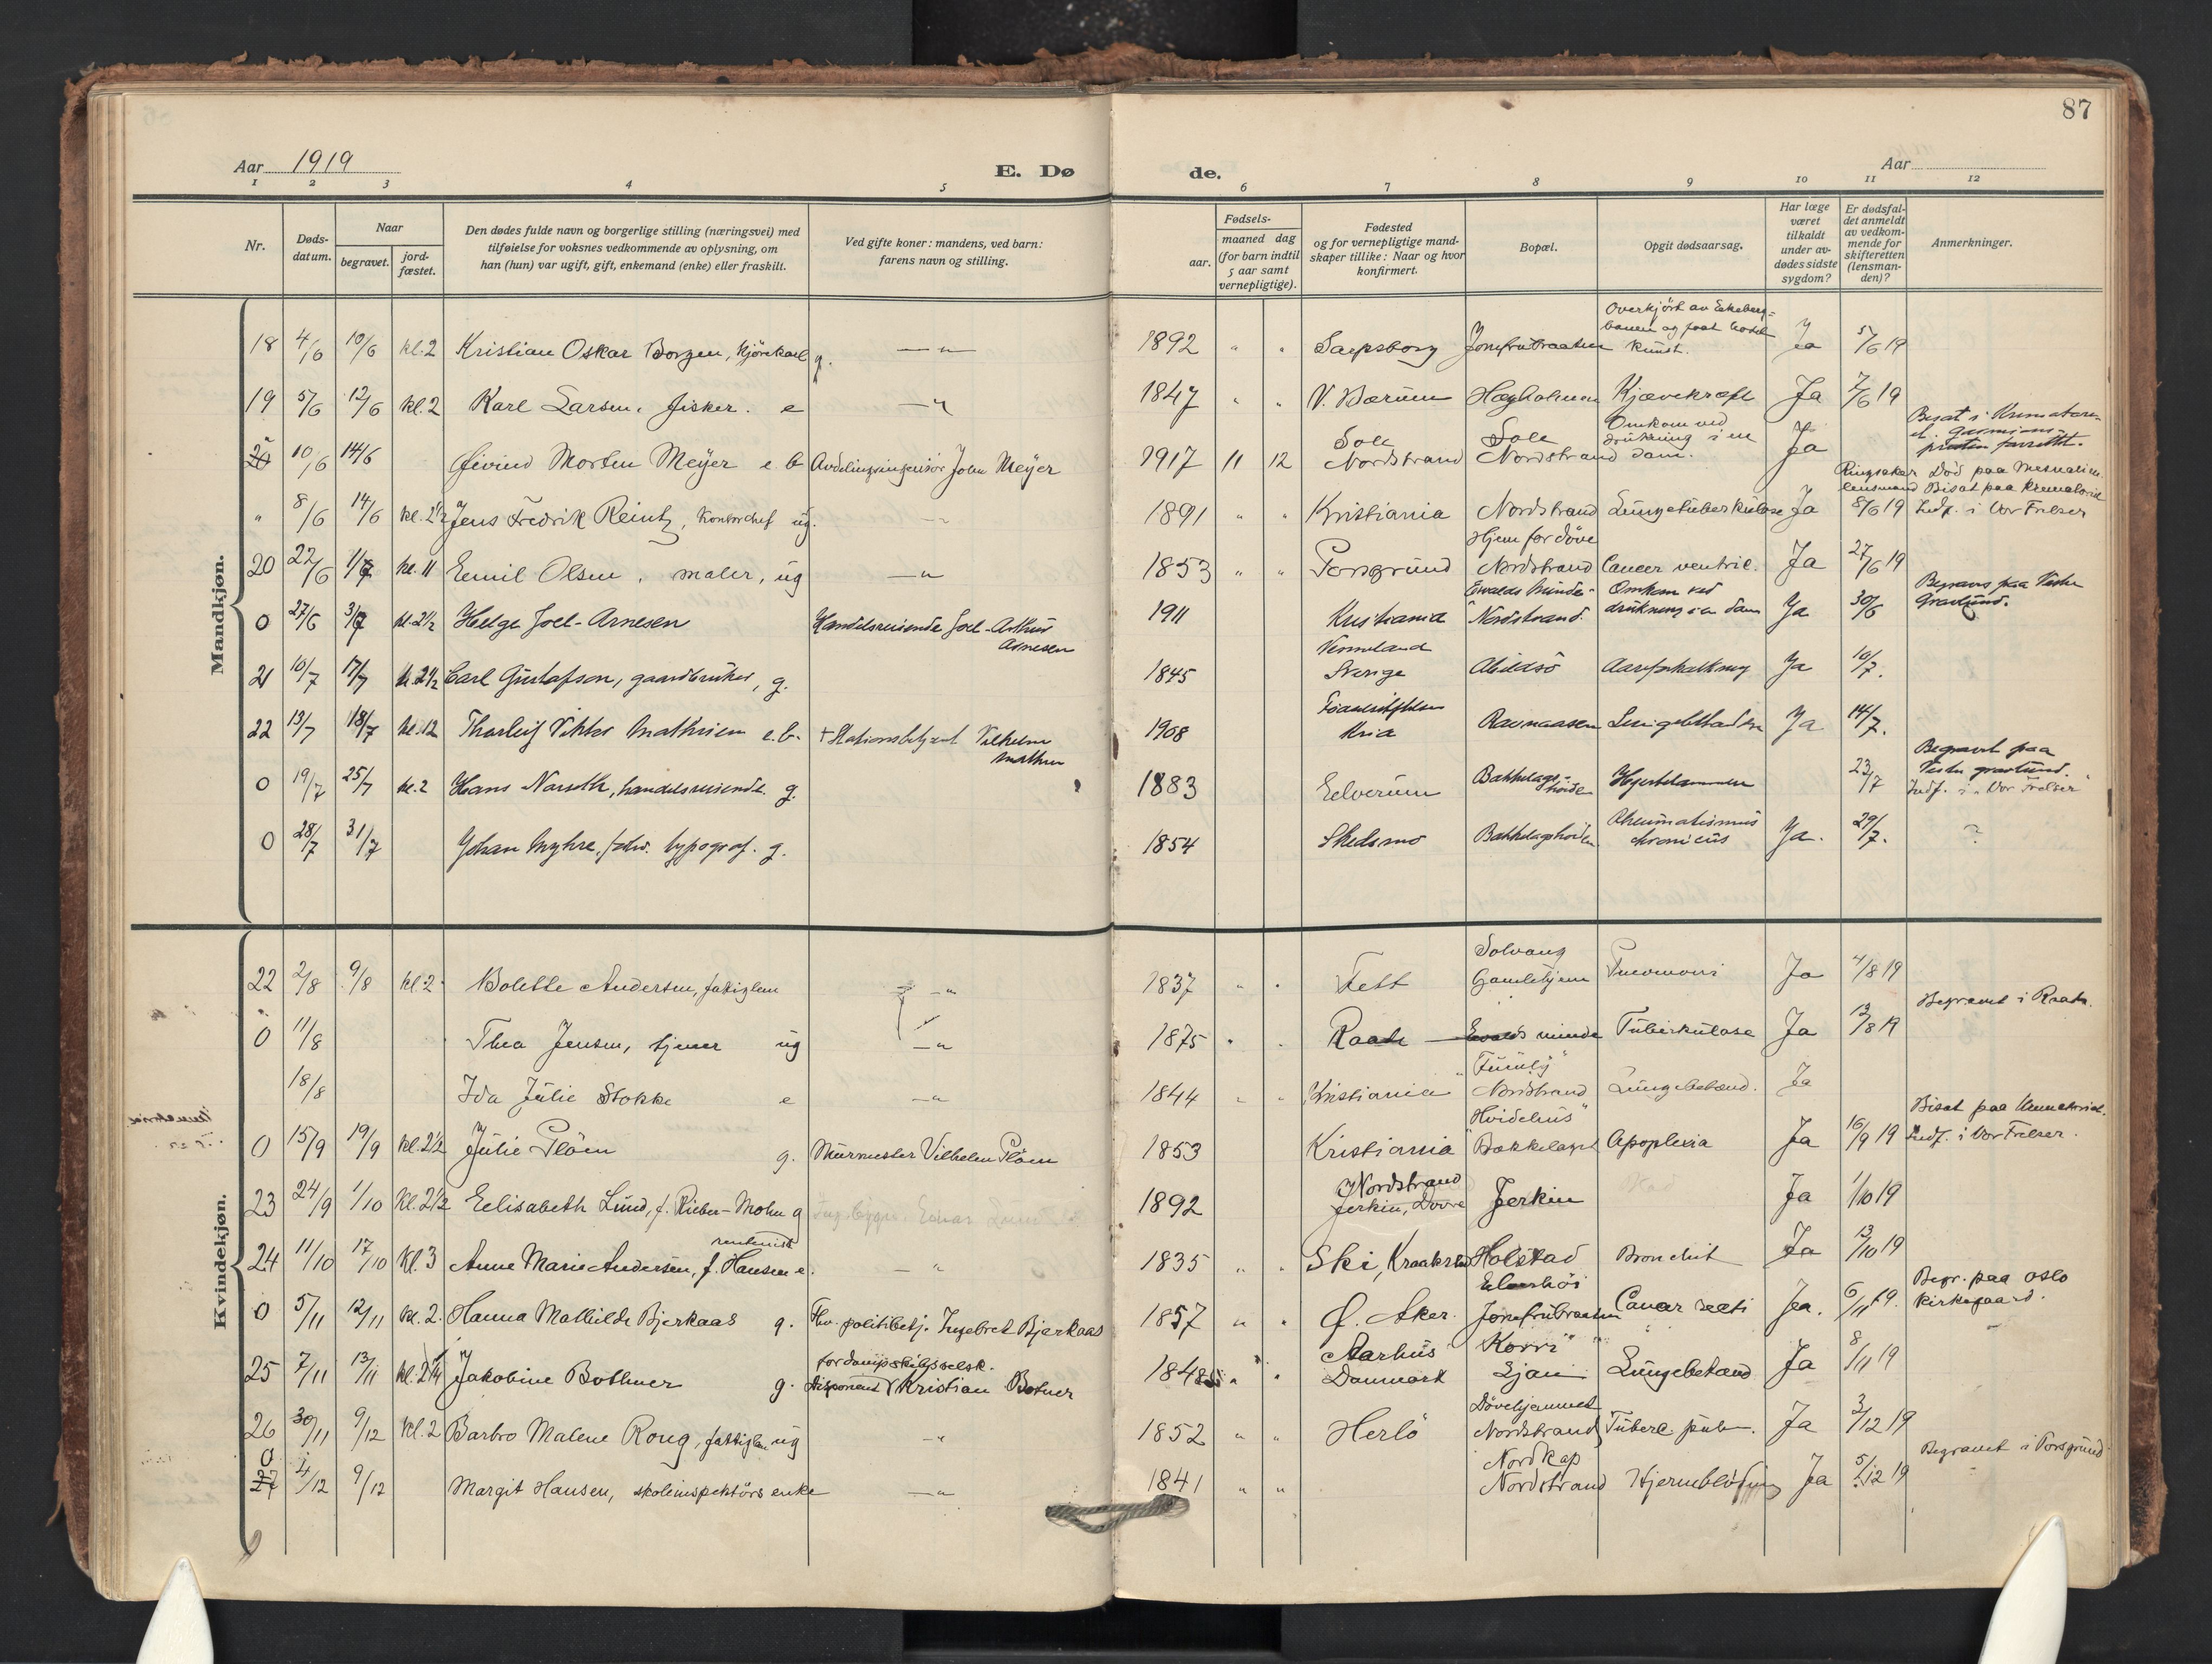 87
Aar 1919
E. Dø
de.
Aar
1 2 3 4 5 6 7 8 9 10 11 12
Nr.
Døds-
datum.
Naar
begravet.
jord-
fæstet.
Den dødes fulde navn og borgerlige stilling (næringsvei) med
tilføielse for voksnes vedkommende av oplysning, om
han (hun) var ugift, gift, enkemand (enke) eller fraskilt.
Ved gifte koner: mandens, ved barn:
farens navn og stilling.
Fødsels-
aar.
maaned dag
(for barn indtil
5 aar samt
vernepligtige).
Fødested
og for vernepligtige mand-
skaper tillike: Naar og hvor
konfirmert.
Bopæl.
Opgit dødsaarsag.
Har læge
været
tilkaldt
under av-
dødes sidste
sygdom?
Er dødsfal-
det anmeldt
av vedkom-
mende for
skifteretten
(lensman-
den)?
Anmerkninger.
Mandkjøn.
Overkjørt av Ekeberg-
banen og faat hodet
18 4/6 10/6 kl. 2 Kristian Oskar Borgen, kjørekarl g. 1892 Sarpsborg Jomfrubraaten knust. Ja 5/6 19
19 5/6 12/6 kl. 2 Karl Larsen, fisker. e 1847 V. Bærum Hægholmen Kjævekræft Ja 7/6 19
Sole Sole Omkom ved drukning i en
20 10/6 14/6 Øivind Morten Meyer e. b Avdelingsingeniør John Meyer 1917 11 12 Nordstrand Nordstrand dam. Ja
Ringsaker Død paa Mesnalien.
lensmand Bisat paa krematoriet
" 8/6 14/6 kl. 2 1/2 Jens Fredrik Reintz, kontorchef ug. 1891 Kristiania Nordstrand Lungetuberkulose Ja 8/6 19 Indf. i Vor Frelser
Hjem for døve
20 22/6 1/7 kl. 11 Emil Olsen, maler, ug 1853 Porsgrund Nordstrand Cancer ventric. Ja 27/6 19
Ewalds Minde Omkom ved Begravet paa Vestre
0 27/6 3/7 kl. 2 1/2 Helge Joel-Arnesen Handelsreisende Joel-Arthur Arnesen 1911 Kristiania Nordstrand. drukning i en dam Ja 30/6 Gravlund.
21 10/7 17/7 kl. 2 1/2 Carl Gustafson, gaardbruker, g. 1845 Sverige Abildsø Aareforkalkning Ja 10/7.
22 13/7 18/7 kl. 12 Thorleif Viktor Mathisen e. b. + Stationsbetjent Vilhelm 1908 Kria Ravnaasen Ja 14/7.
Begravet paa
Vestre gravlund.
0 19/7 25/7 kl. 2 Hans Narseth, handelsreisende. g. 1883 Elverum Bækkelags-høiden Hjertelammelse 23/7 Indf. i "Vor Frelser"
0 28/7 31/7 Johan Myhre, fhv. typograf. g. 1854 Skedsmo Bækkelagshøiden Rheumatismus chronicus Ja. 29/7. ?
Kvindekjøn.
Solvang
22 2/8 9/8 kl. 2 Bolette Andersen, fattiglem 1837 Fett Gamlehjem Pneumoni Ja 4/8 19
Begravet i Raade.
0 11/8 Thea Jensen, tjener ug 1875 Raade Ewalds minde Tuberkulose Ja 12/8 19
18/8 Ida Julie Stokke e 1844 Kristiania Nordstrand Lungebetænd. Ja
"Hvidehus" Bisat paa Krematoriet.
0 15/9 19/9 kl. 2 1/2 Julie Pløen g. Murmester Vilhelm Pløen 1853 Kristiania Bækkelaget Apoplexia Ja 16/9 19 Indf. i Vor Frelser.
Nordstrand
23 24/9 1/10 kl. 2 1/2 Elisabeth Lund, f. Rieber-Mohn g 1892 Jerkin, Dovre Jerkin Ja 1/10 19
rentenist
24 11/10 17/10 kl. 3 Anne Marie Andersen, f. Hansen e. 1835 Ski, Kraakstad Holstad Bronchit Ja 13/10 19
Begr. paa Oslo
0 5/11 12/11 kl. 2. Hanna Mathilde Bjerkaas g. Fhv. politibetj. Ingebret Bjerkaas 1857 Ø. Aker. Jomfrubraaten Cancer recti Ja. 6/11 19. Kirkegaard.
for dampskibsselsk. Aarhus "Korri"
25 7/11 13/11 Jakobine Bothner g. disponent Kristian Botner 1848 Danmark Ljan Lungebetænd Ja 8/11 19
Døvehjemmet
26 30/11 9/12 kl. 2 Barbro Malene Rong, fattiglem ug 1852 Herlø Nordstrand Tuberc pulm. Ja 3/12 19
Nordkap Begravet i Porsgrund
0 27 4/12 9/12 Margit Hansen, skoleinspektørs enke 1841 Nordstrand Hjerneblødning Ja 5/12 19